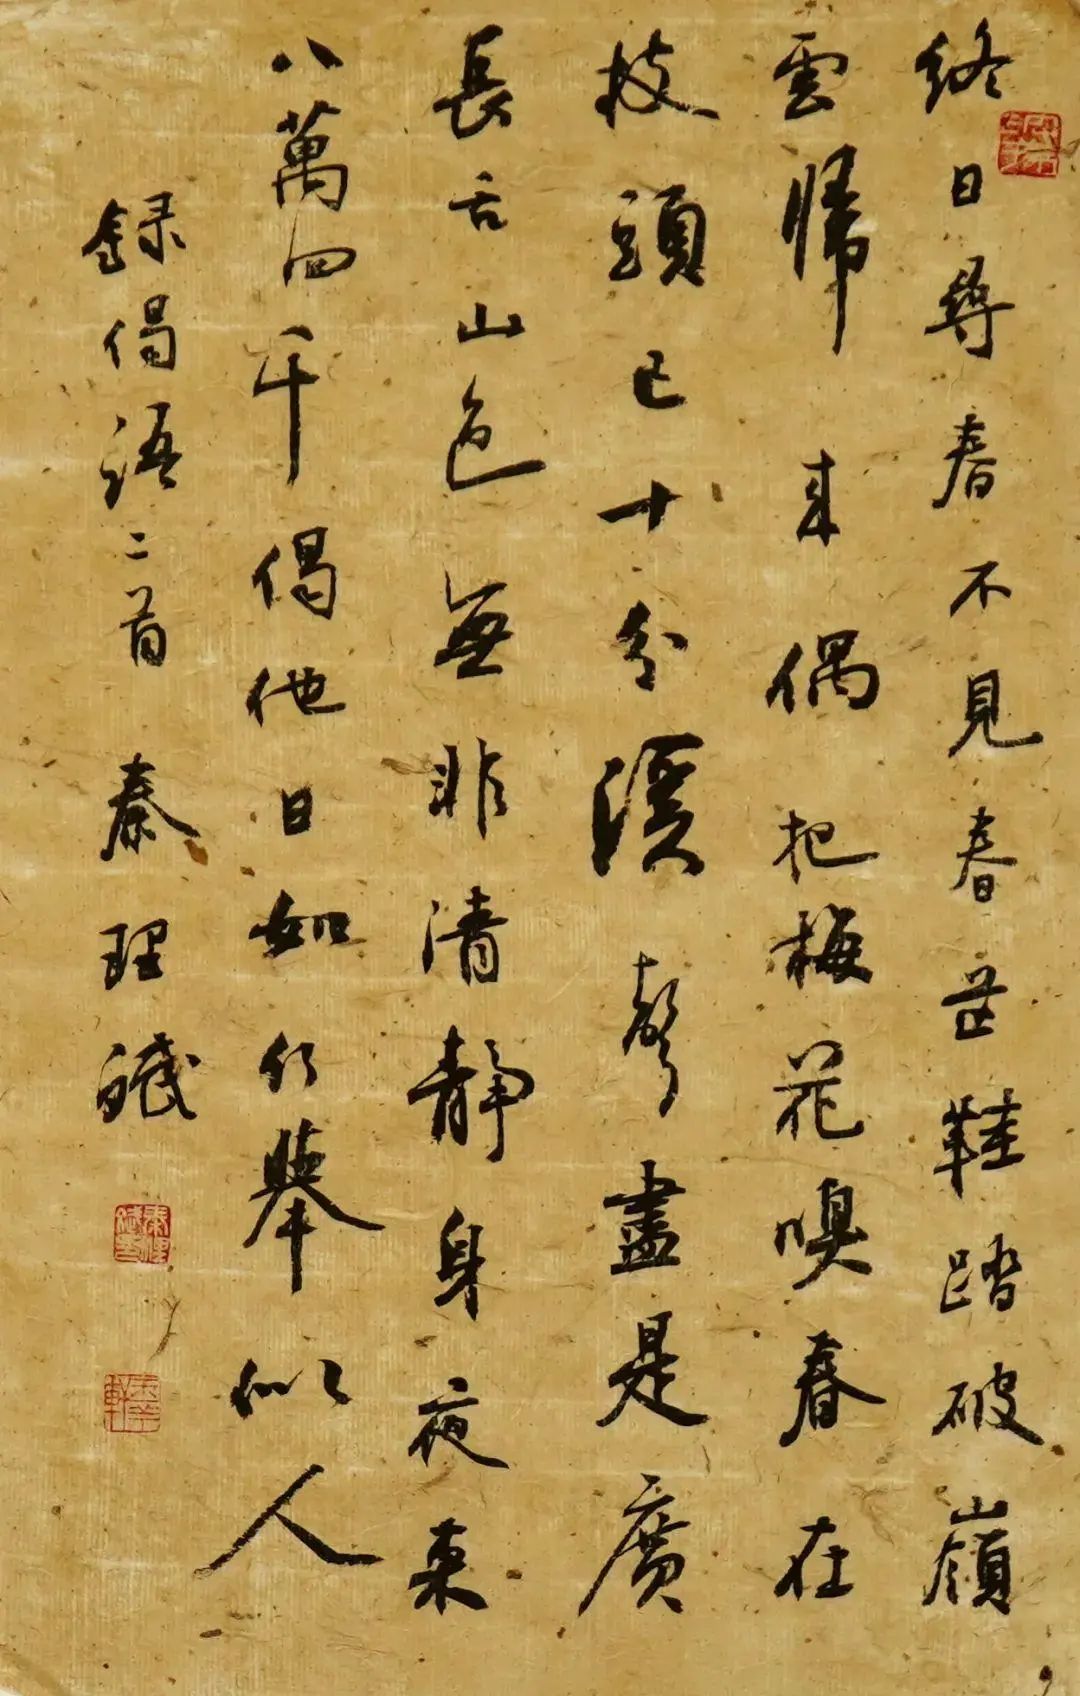 終日尋春不見春芒鞋踏破嶺
雲歸来偶把梅花嗅春在
枝頭已十分溪聲盡是廣
長舌山色無非清静身夜来
八萬四千偈他日如何舉似人
録偈語二首 秦理斌